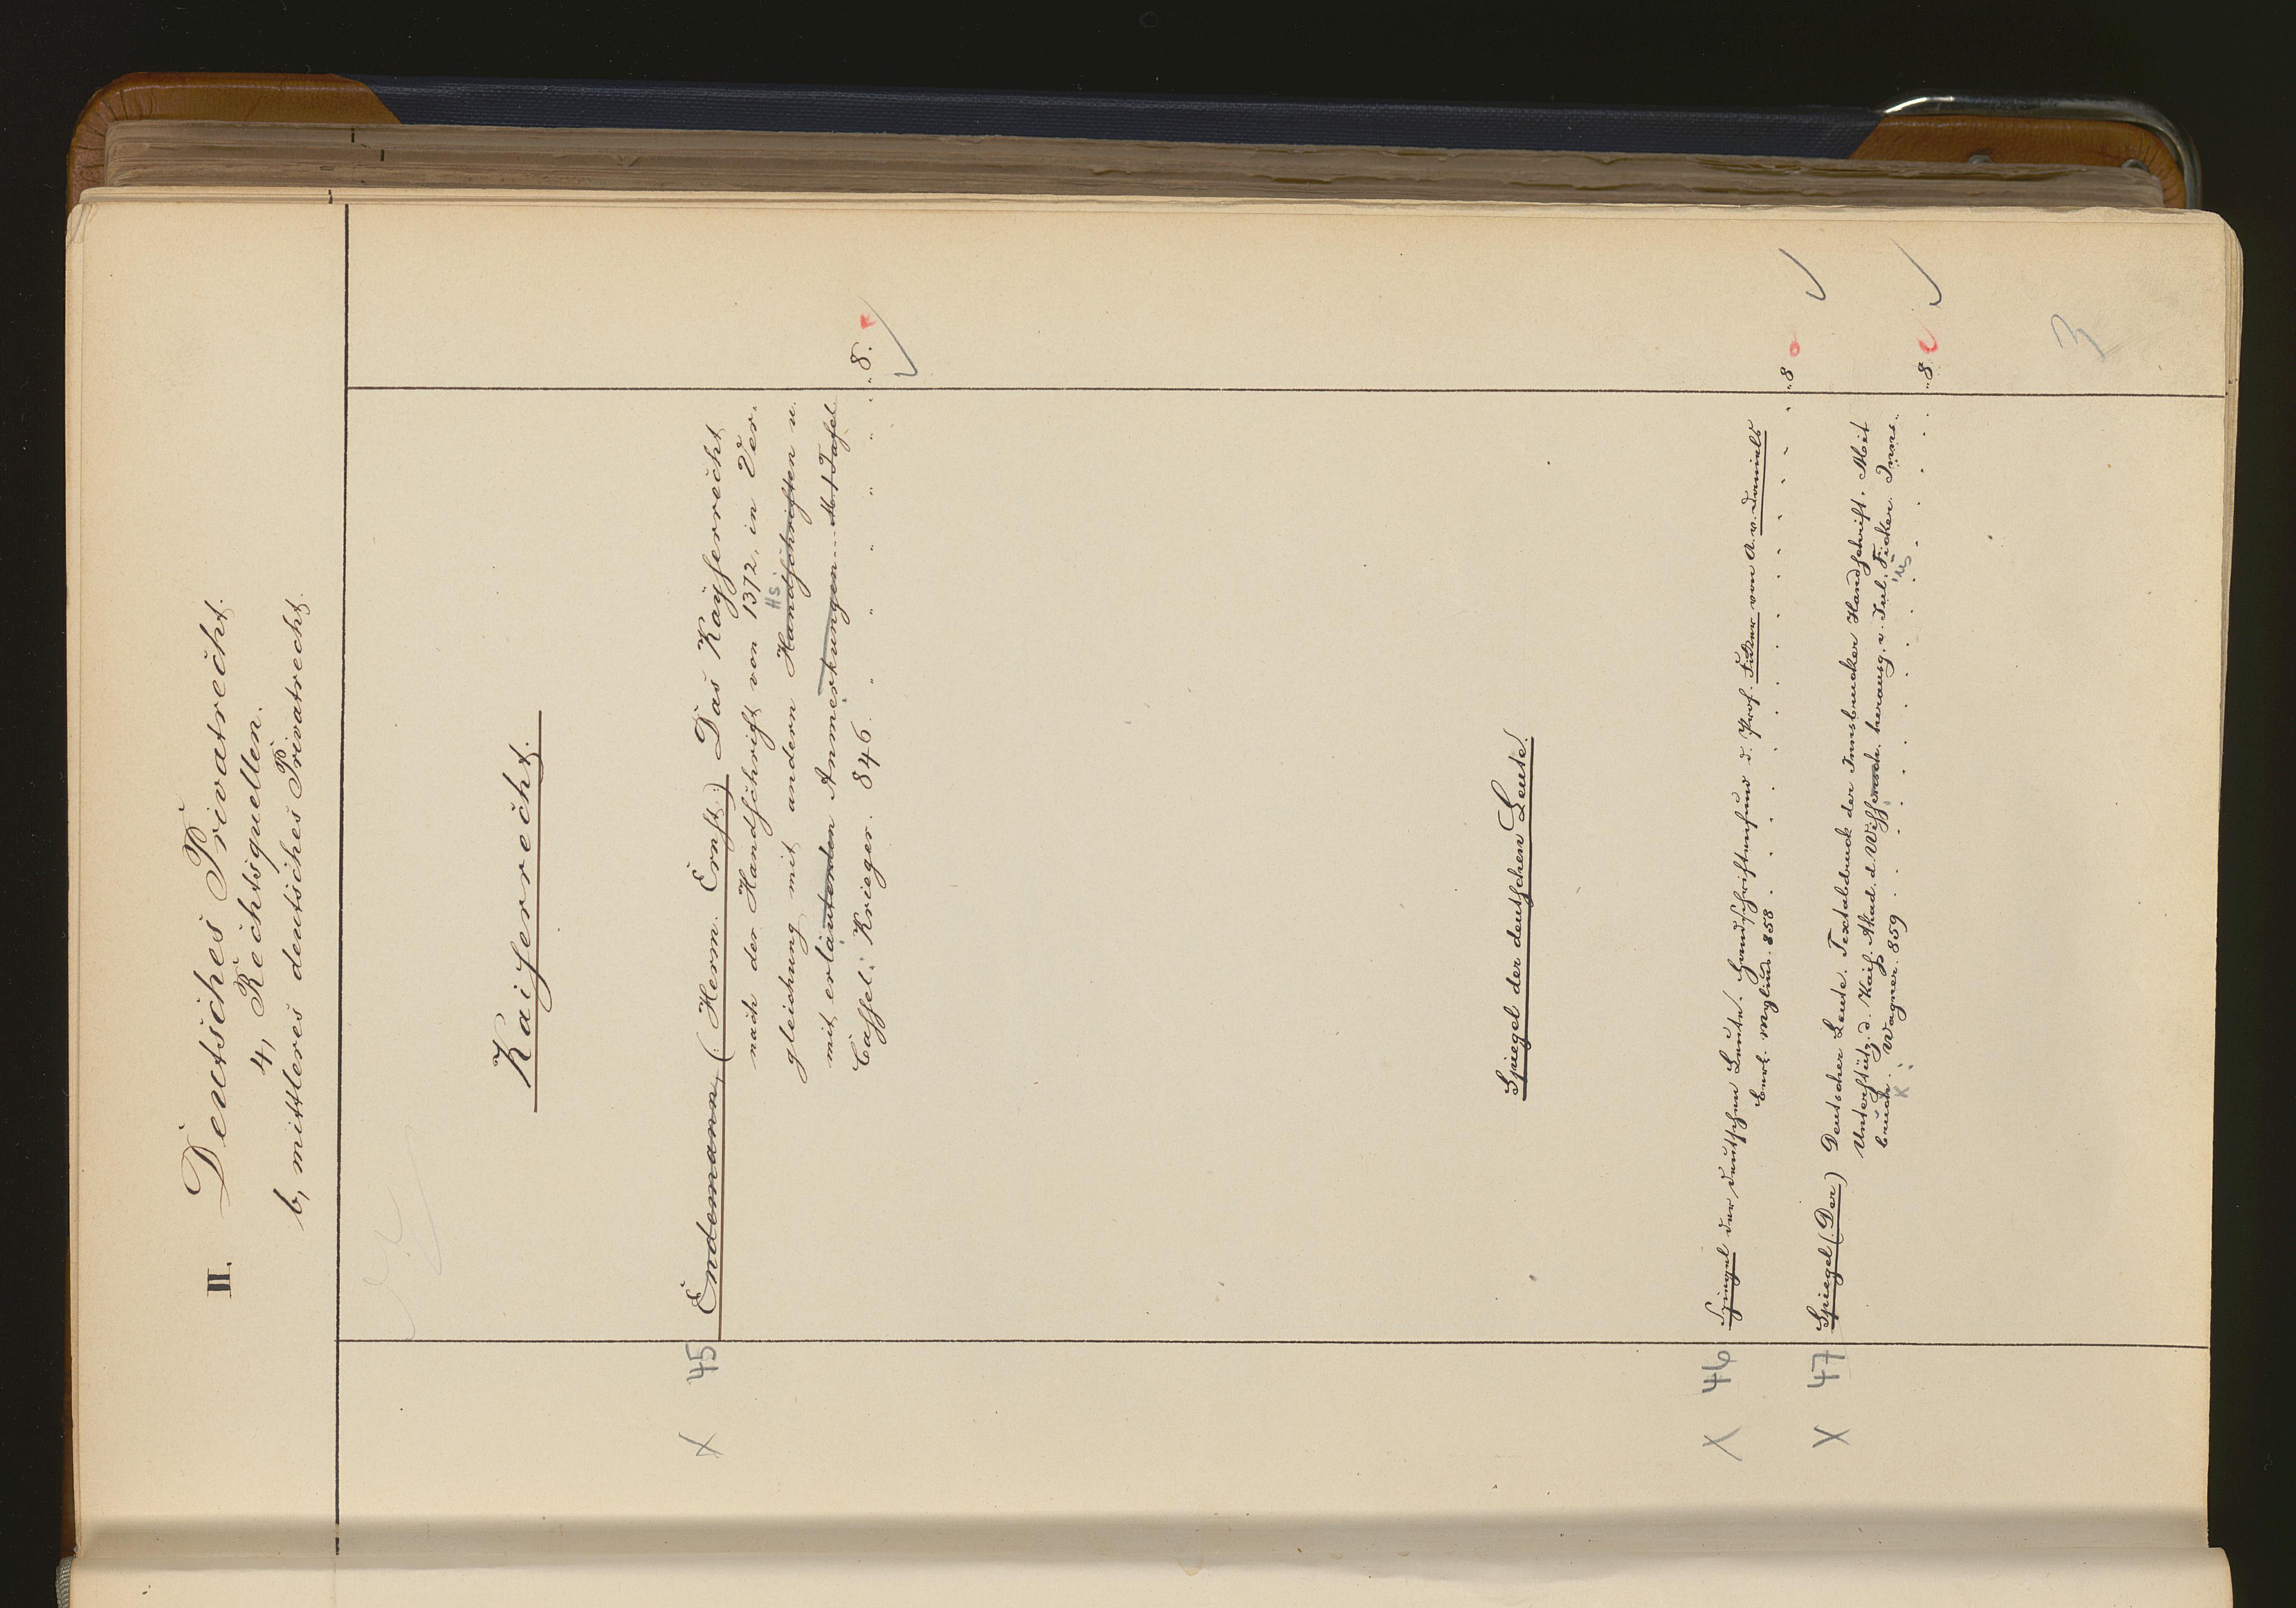 II. Deutsches Privatrecht.
4, Rechtsquellen.
b, mittleres deutsches Privatrecht.
Kaiserrecht.
X 45 Endemann, (Herm. Ernst.) Das Kayserrecht
nach der Handschrift von 1372, in Ver-
Hs
gleichung mit andern Handschriften u.
mit erläuternden Anmerkungen... M. 1 Tafel.
Cassel: Krieger. 846. " " " " " " 8.
Spiegel der deutschen Leute.
X 46 Spiegel der deutschen Leute. Handschriftenfund d. Prof. Ficker von A. v. Daniels
Berl. Mylius. 858. " 8
X 47 Spiegel (Der) Deutscher Leute. Textabdruck der Innsbrucker Handschrift. Mit
Unterstütz. d. Kais. Akad. d. Wissensch. herausg. v. Jul. Ficker. Inns-
bruck: Wagner. 859 " 8.
3